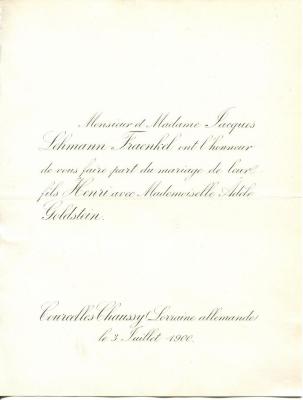 Monsieur et Madame Jacques
Lehmann Fraenkel ont l'honneur
de vous faire part du mariage de leur
fils Henri avec Mademoiselle Adèle
Goldstein.
Courcelles Chaussy (Lorraine allemande)
le 3 Juillet 1900.